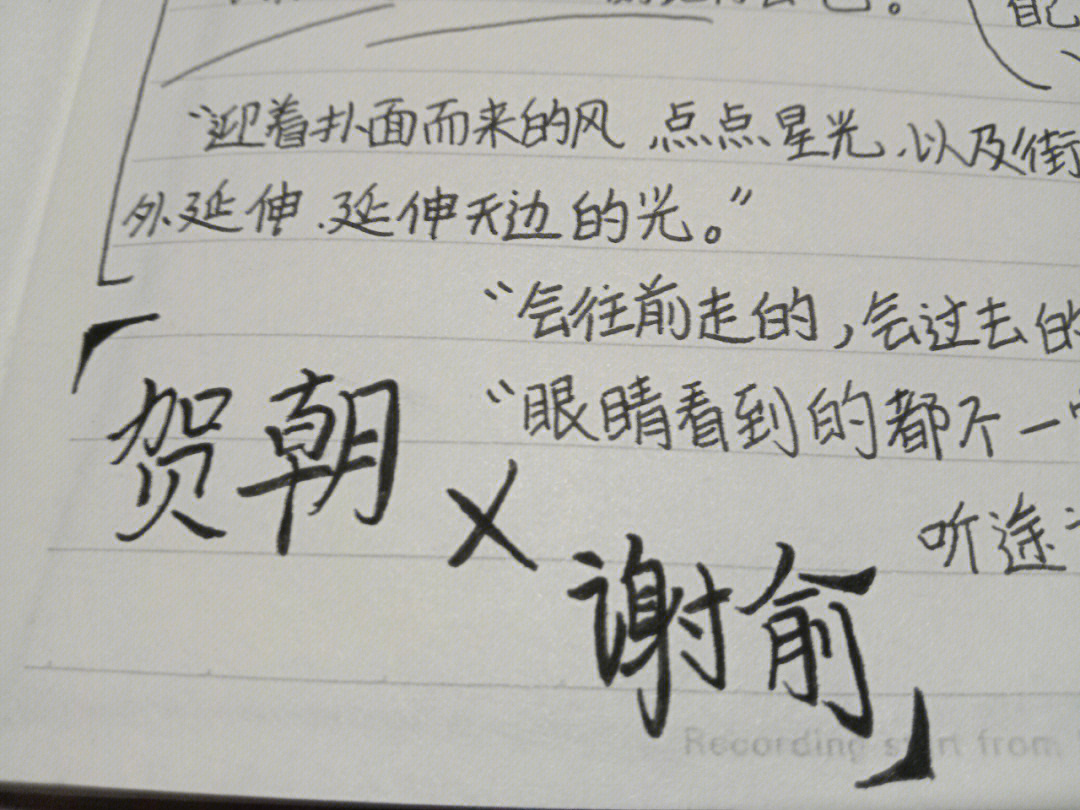 “迎着扑面而来的风、点点星光、以及街
外延伸、延伸天边的光。”
“会往前走的，会过去的
“眼睛看到的都不一
「贺朝×谢俞」
听途
Recording start from